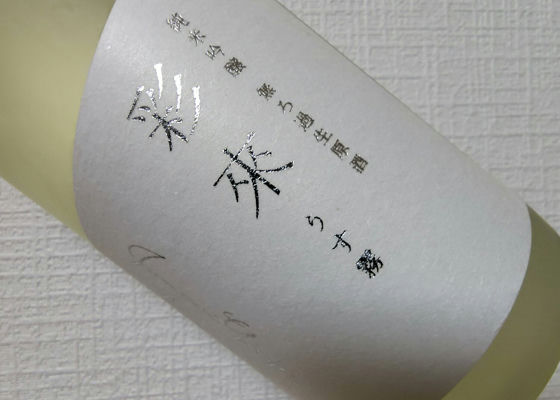 純米吟醸 無ろ過生原酒
彩來
うす霧